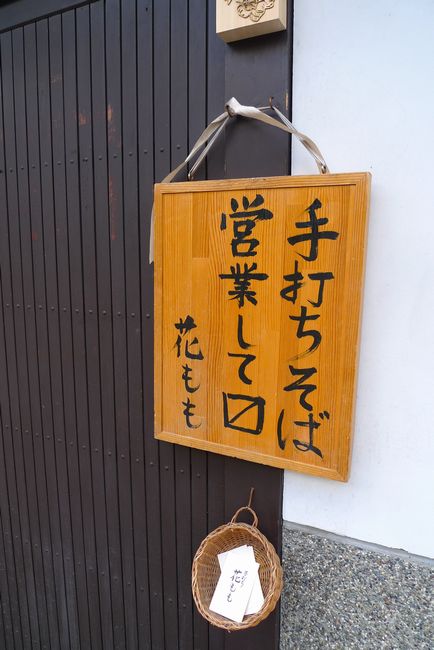 手打ちそば
営業して〼
花もも
花もも